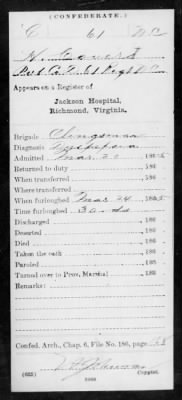 (CONFEDERATE.)
C 61 N.C.
H.
Pvt Co. C. 61 Regt N.C.
Appears on a Register of
Jackson Hospital,
Richmond, Virginia.
Brigade Clingman
Diagnosis
Admitted Mar. 186
Returned to duty , 186
When transferred , 186
Where transferred
When furloughed Mar 24 1865
Time furloughed 30 ds
Discharged , 186
Deserted , 186
Died , 186
Took the oath , 186
Paroled , 186
Turned over to Prov. Marshal , 186
Remarks:
Confed. Arch., Chap. 6, File No. 186, page
(635)
Copyist.